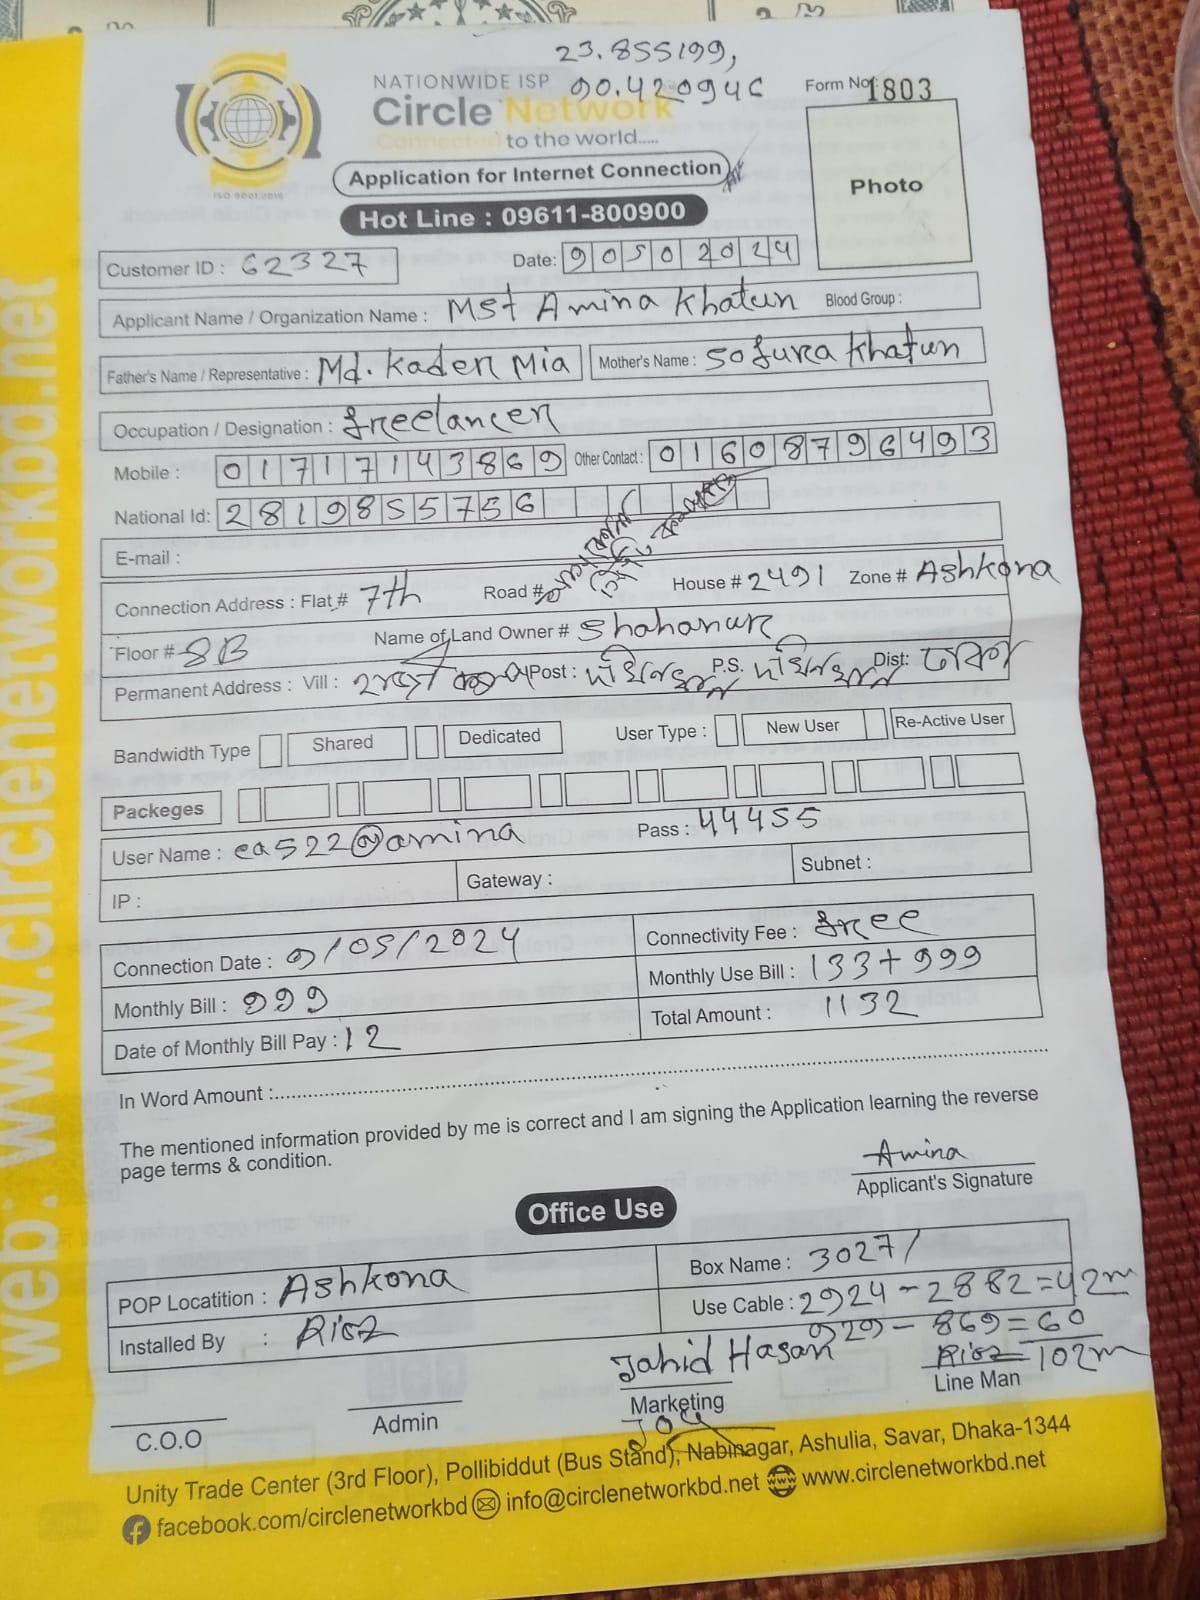 23.855199,
90.420946
NATIONWIDE ISP
Form No: 1803
Circle Network
Connected to the world.....
ISO 9001:2015
Photo
Application for Internet Connection
Hot Line : 09611-800900
Customer ID : 62327
Date: 9 0 5 0 2024
Applicant Name / Organization Name : Mst Amina Khatun Blood Group :
Father's Name / Representative : Md. Kader Mia Mother's Name : Sofura Khatun
Occupation / Designation : freelancer
Mobile : 01717143869 Other Contact : 01608796493
National Id: 2819855756
E-mail :
Connection Address : Flat # 7th Road # House # 2491 Zone # Ashkona
Floor # 8B Name of Land Owner # Shahanur
Permanent Address : Vill : Post : দক্ষিনখান P.S. দক্ষিনখান Dist: ঢাকা
Bandwidth Type Shared Dedicated User Type : New User Re-Active User
Packeges
User Name : ea522@amina Pass : 44455
IP : Gateway : Subnet :
Connection Date : 9/05/2024 Connectivity Fee : free
Monthly Bill : 999 Monthly Use Bill : 133+999
Date of Monthly Bill Pay : 12 Total Amount : 1132
In Word Amount :
The mentioned information provided by me is correct and I am signing the Application learning the reverse
page terms & condition.
Amina
Applicant's Signature
Office Use
POP Locatition : Ashkona Box Name : 3027/
Installed By : Riaz Use Cable : 2924-2882=42m
929-869=60
Jahid Hasan Riaz 102m
C.O.O Admin Marketing Line Man
Joy
Unity Trade Center (3rd Floor), Pollibiddut (Bus Stand), Nabinagar, Ashulia, Savar, Dhaka-1344
facebook.com/circlenetworkbd info@circlenetworkbd.net www.circlenetworkbd.net
web: www.circlenetworkbd.net